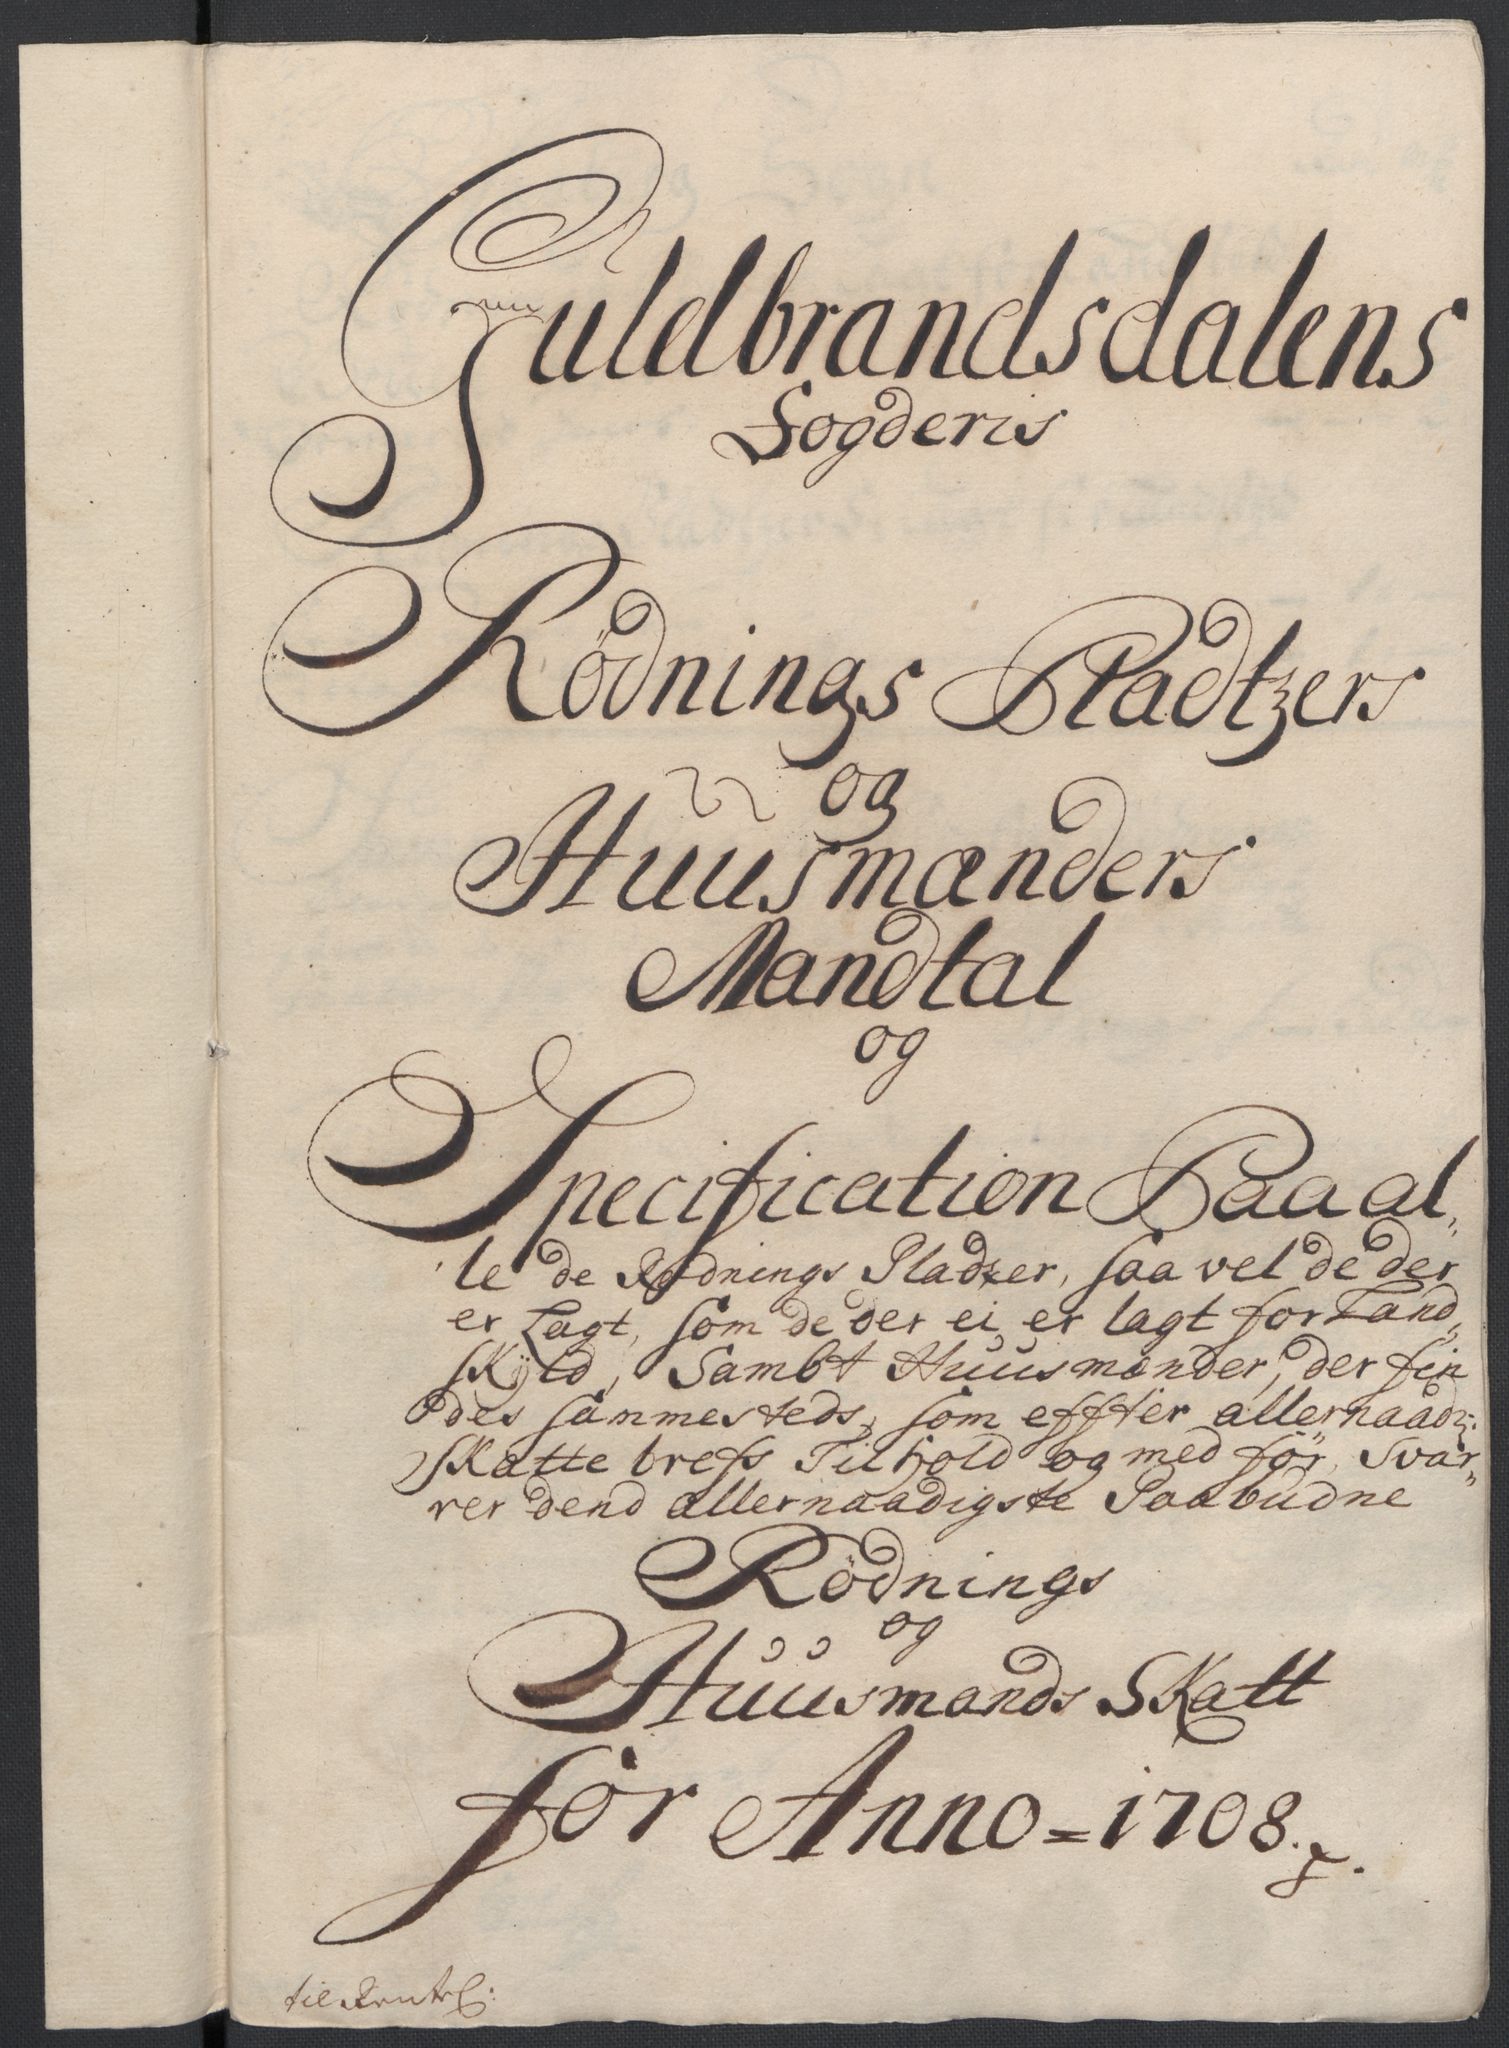 Guldbrandsdalens
Fogderis
Rödnings Pladtzers
og
Huusmænders
Mandtal
og
Specification Paa al„
le de Rödnings Pladzer, saa vel de der
er Lagt, som de der ei er lagt for Land„
skÿld, Sambt Huusmænder, der fin
des sammesteds, som effter allernaadi:
Skatte brefs Tilhold og med för, Svar„
rer dend allernaadigste Paabudne
Rödnings
og
Huusmands Skatt
for Anno = 1708.